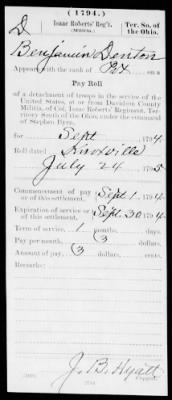 (1794.)
D
Isaac Roberts' Reg't.
(MILITIA.)
Ter. So. of
the Ohio.
Benjamin Denton
Appears with the rank of Pvt. on a
Pay Roll
of a detachment of troops in the service of the
United States, at or from Davidson County
Militia, of Col. Isaac Roberts' Regiment, Ter-
ritory South of the Ohio, under the command
of Stephen
for Sept 1794
Roll dated Knoxville
July 24 1795
Commencement of pay
or of this settlement. Sept. 1 1794
Expiration of service or
of this settlement. Sept. 30 1794
Term of service, 1 months, days.
Pay per month, (3 dollars.
Amount of pay, (3 dollars, cents.
Remarks:
J. B. Hyatt
Copyist.